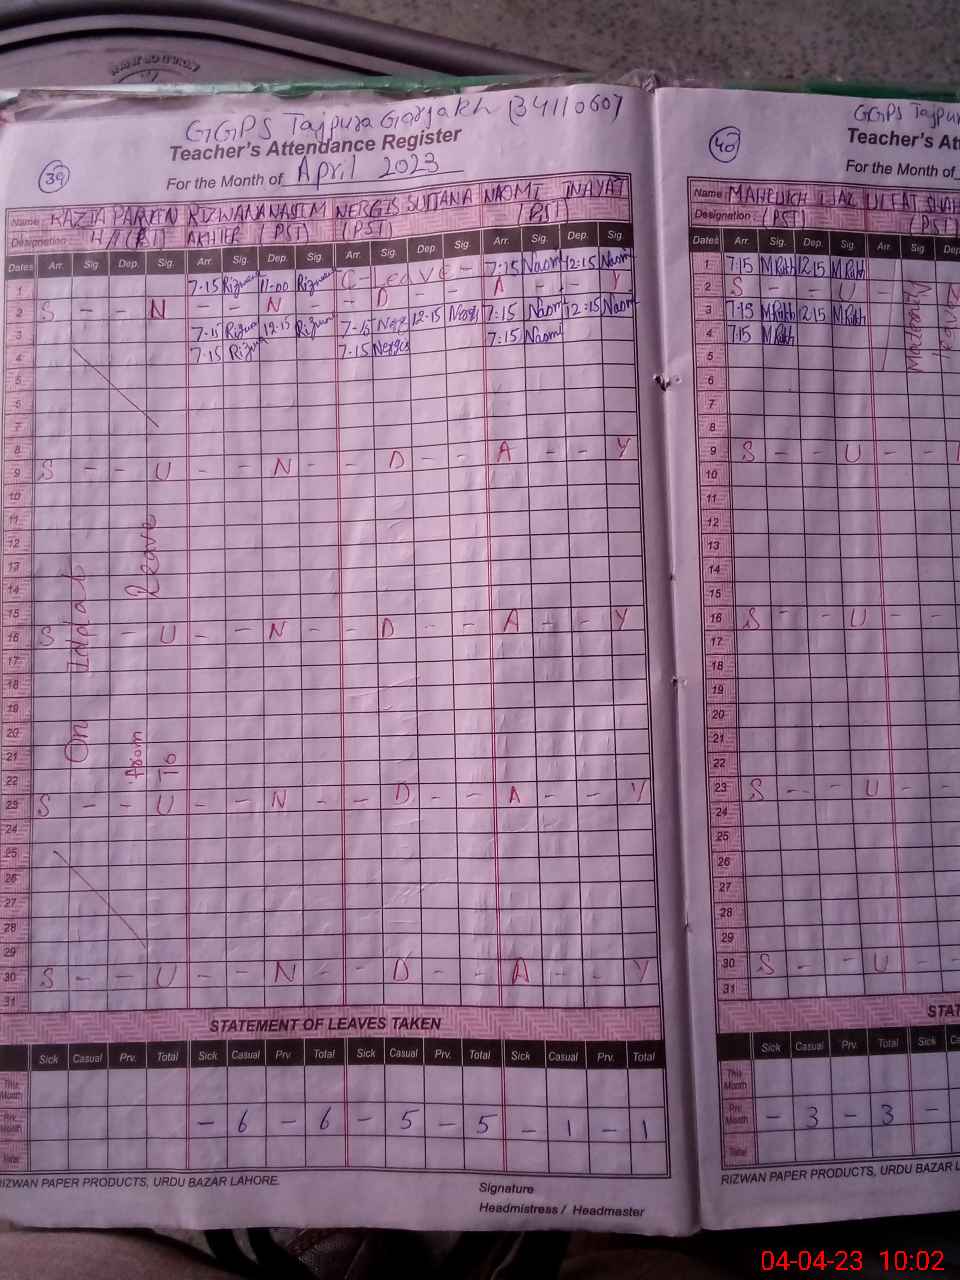 GGPS Tajpura Garjakh (34110607
Teacher's Attendance Register
39
For the Month of April 2023
Name : RAZIA PARVEEN RIZWANA NASEEM NERGIS SULTANA NAOMI INAYAT
Designation : H/T (PST) AKHTER (PST) (PST) (PST)
Dates Arr. Sig. Dep. Sig. Arr. Sig. Dep. Sig. Arr. Sig. Dep. Sig. Arr. Sig. Dep. Sig.
1 7:15 11:00 C-Leave- 7:15 Naomi 12:15 Naomi
2 S - - N - - N - - D - - A - - Y
3 7:15 12:15 7:15 12:15 7:15 Naomi 12:15 Naomi
4 7:15 7:15 Nergis 7:15 Naomi
5
6
7
8
9 S - - U - - N - - D - - A - - Y
10
11
12
13
14
15
16 S - - U - - N - - D - - A - - Y
17
18
19
20
21
22
23 S - - U - - N - - D - - A - - Y
24
25
26
27
28
29
30 S - - U - - N - - D - - A - - Y
31
On Iddat Leave
from To
STATEMENT OF LEAVES TAKEN
Sick Casual Prv. Total Sick Casual Prv. Total Sick Casual Prv. Total Sick Casual Prv. Total
This Month
Prv. Month - 6 - 6 - 5 - 5 - 1 - 1
Total
RIZWAN PAPER PRODUCTS, URDU BAZAR LAHORE.
Signature
Headmistress / Headmaster
GGPS Tajpur
Teacher's Att
40
For the Month of
Name : MAHRUKH IJAZ ULFAT SHAH
Designation : (PST) (PST)
Dates Arr. Sig. Dep. Sig Arr. Sig. Dep
1 7:15 M Rukh 12:15 M Rukh
2 S - - U - - N
3 7:15 M Rukh 12:15 M Rukh
4 7:15 M Rukh
5
6
7
8
9 S - - U - -
10
11
12
13
14
15
16 S - - U - -
17
18
19
20
21
22
23 S - - U - -
24
25
26
27
28
29
30 S - - U - -
31
Leave
STAT
Sick Casual Prv. Total Sick Ca
This Month
Prv. Month - 3 - 3 -
Total
RIZWAN PAPER PRODUCTS, URDU BAZAR L
04-04-23 10:02